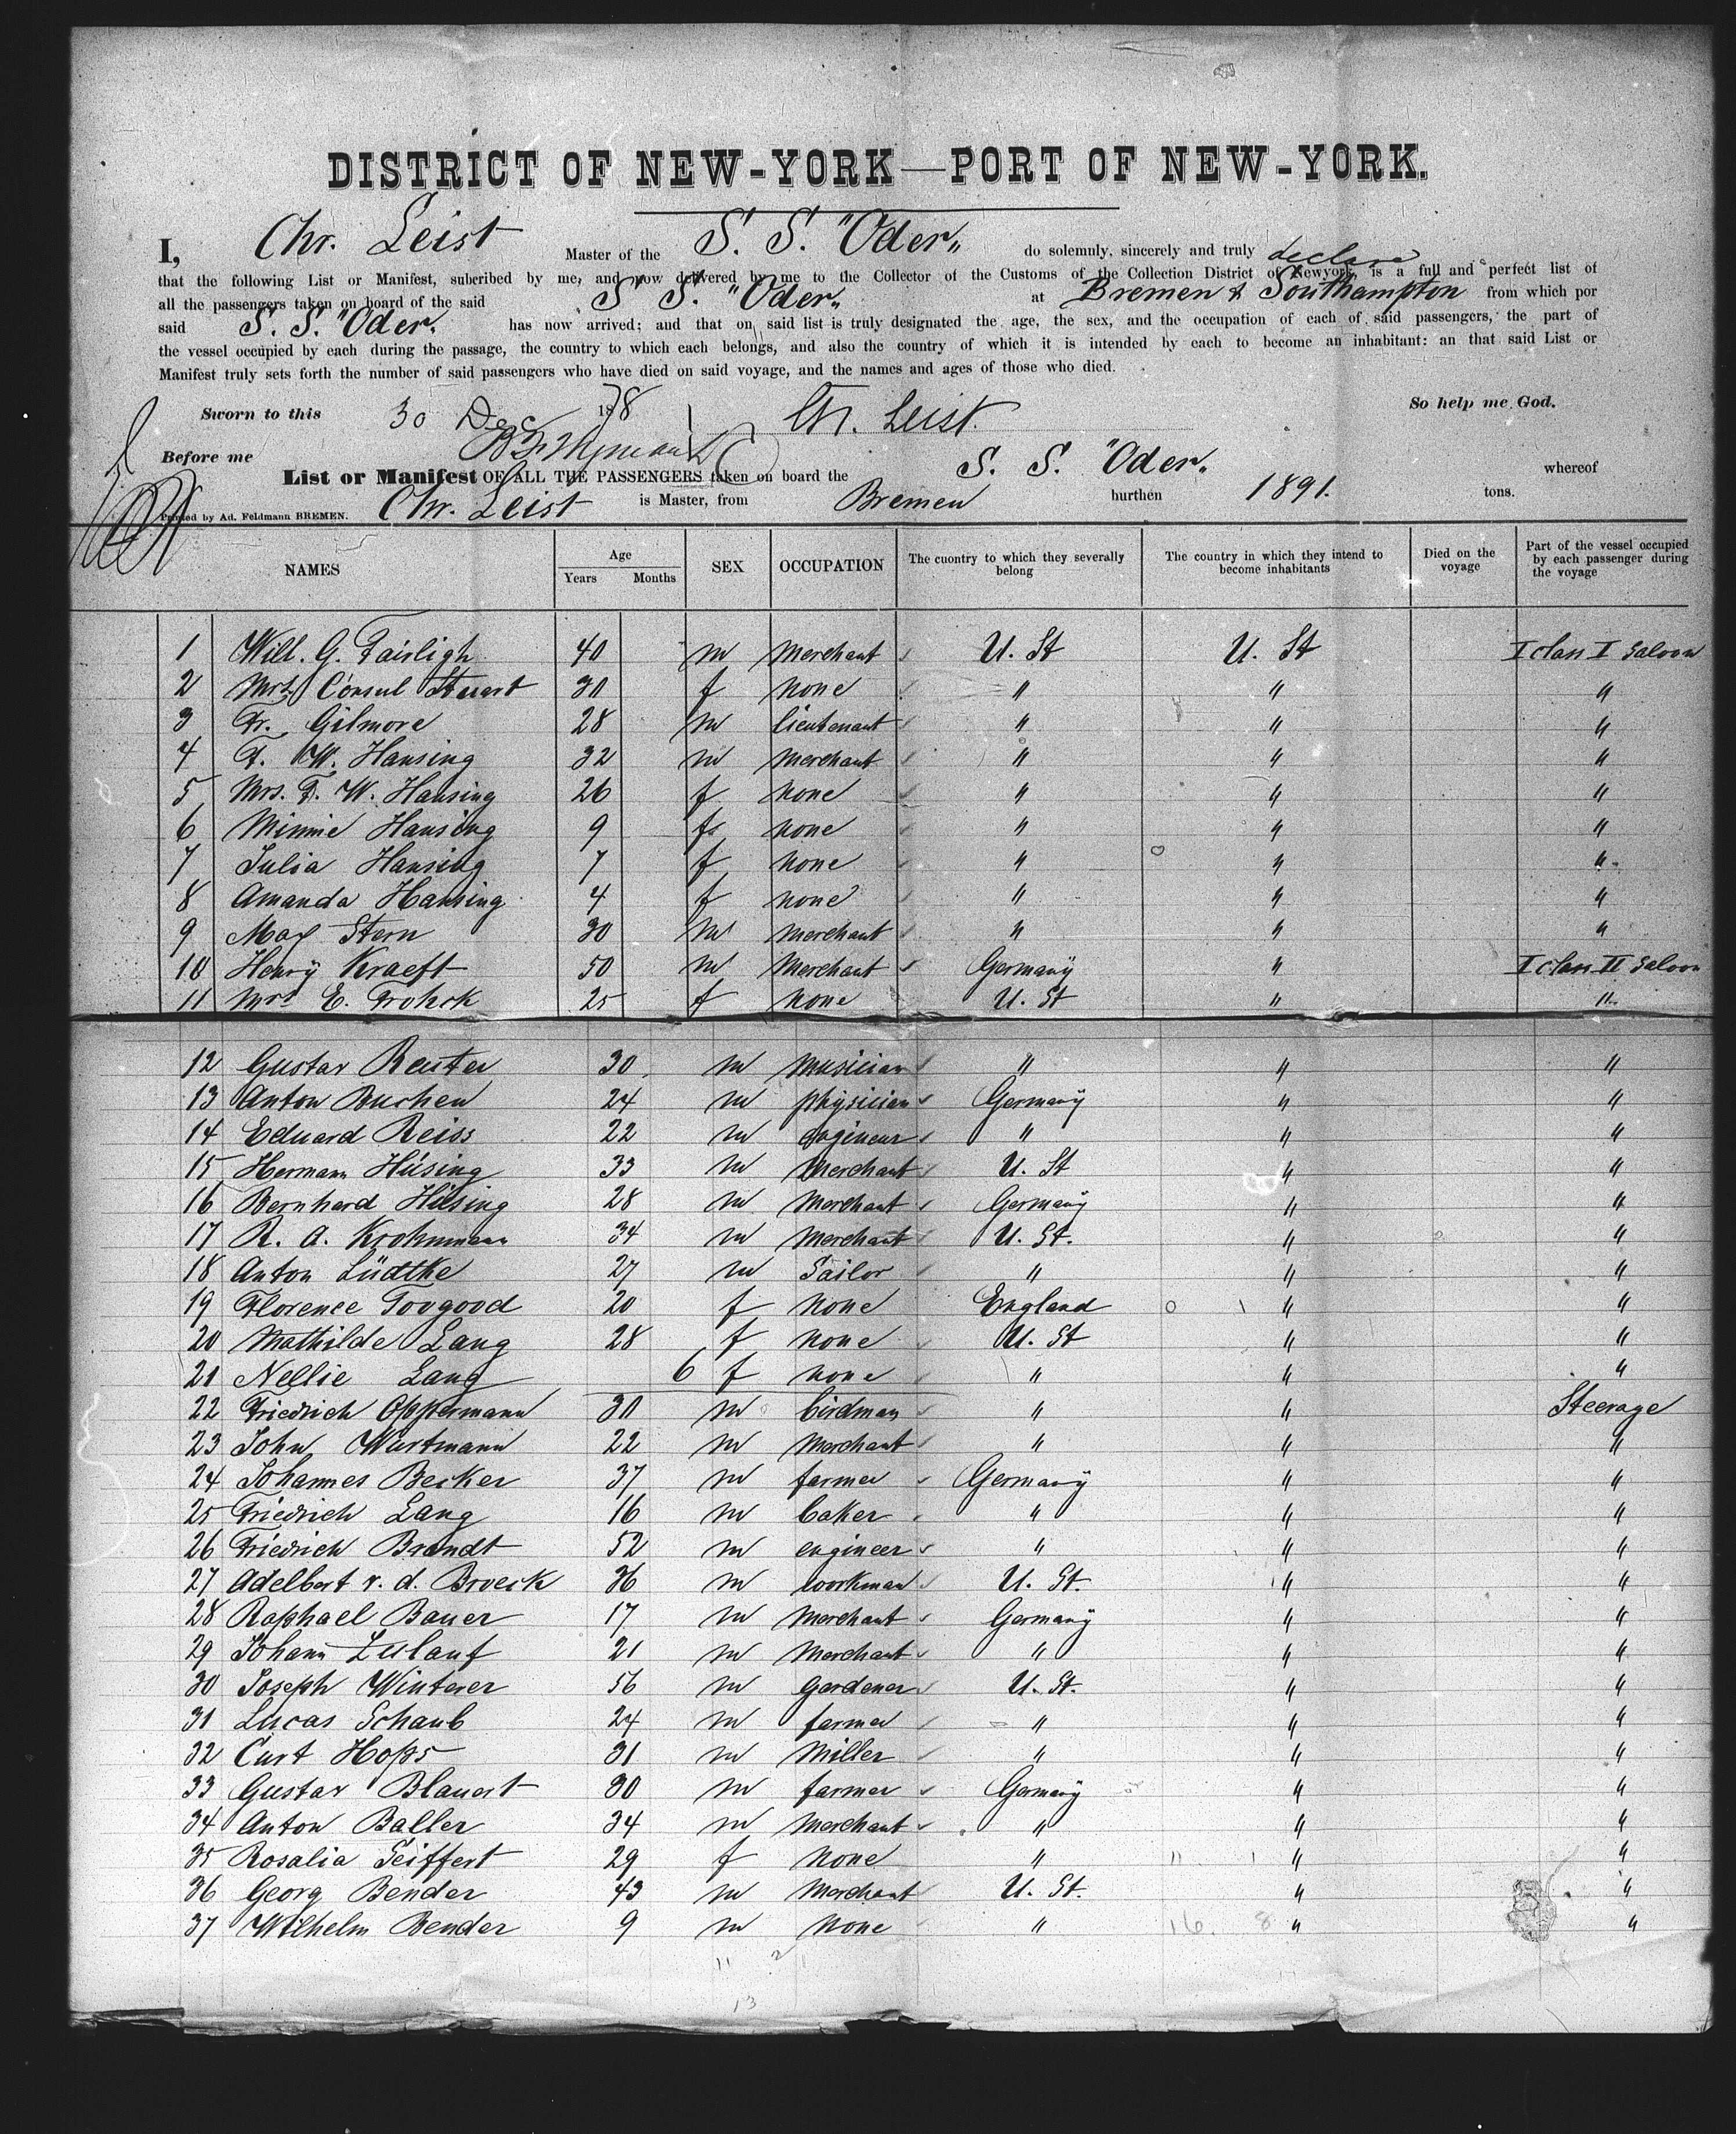 DISTRICT OF NEW-YORK—PORT OF NEW-YORK.
I, Chr. Leist Master of the S. S. "Oder" do solemnly, sincerely and truly declare
that the following List or Manifest, suberibed by me, and now delivered by me to the Collector of the Customs of the Collection District of Newyork, is a full and perfect list of
all the passengers taken on board of the said S. S. "Oder" at Bremen & Southampton from which por
said S. S. "Oder" has now arrived; and that on said list is truly designated the age, the sex, and the occupation of each of said passengers, the part of
the vessel occupied by each during the passage, the country to which each belongs, and also the country of which it is intended by each to become an inhabitant: an that said List or
Manifest truly sets forth the number of said passengers who have died on said voyage, and the names and ages of those who died.
Sworn to this 30 Dec 1878 Ch. Leist So help me God.
Before me
List or Manifest OF ALL THE PASSENGERS taken on board the S. S. "Oder" whereof
Printed by Ad. Feldmann BREMEN. Chr. Leist is Master, from Bremen burthen 1891. tons.
NAMES Age Years Months SEX OCCUPATION The cuontry to which they severally belong The country in which they intend to become inhabitants Died on the voyage Part of the vessel occupied by each passenger during the voyage
1 Will. G. Fairligh 40 m Merchant U. St U. St I class I Saloon
2 Mrs. Consul 30 f none " " "
3 Fr. Gilmore 28 m lieutenant " " "
4 F. W. Hansing 32 m Merchant " " "
5 Mrs. F. W. Hansing 26 f none " " "
6 Minnie Hansing 9 f none " " "
7 Julia Hansing 7 f none " " "
8 Amanda Hansing 4 f none " " "
9 Max Stern 30 m Merchant " " "
10 Henry Kraeft 50 m Merchant Germany " I class II Saloon
11 Mrs E. Frohck 25 f none U. St " "
12 Gustav Reuter 30 m Musician " " "
13 Anton Buchen 24 m physician Germany " "
14 Eduard Reiss 22 m engineur " " "
15 Hermann Hüsing 33 m Merchant U. St " "
16 Bernhard Hüsing 28 m Merchant Germany " "
17 R. A. Krohnmann 34 m Merchant U. St. " "
18 Anton Lüdtke 27 m Sailor " " "
19 Florence Toogood 20 f none England " "
20 Mathilde Lang 28 f none U. St " "
21 Nellie Lang 6 f none " " "
22 Friedrich Oppermann 30 m birdman " " Steerage
23 John Wartmann 22 m Merchant " " "
24 Johannes Becker 37 m farmer Germany " "
25 Friedrich Lang 16 m baker " " "
26 Friedrich Brandt 52 m engineer " " "
27 Adelbert v. d. Broeck 36 m workman U. St. " "
28 Raphael Bauer 17 m Merchant Germany " "
29 Johann Zulauf 21 m Merchant " " "
30 Joseph Winterer 56 m gardener U. St. " "
31 Lucas Schaub 24 m farmer " " "
32 Curt Hops 31 m Miller " " "
33 Gustav Blauert 30 m farmer Germany " "
34 Anton Baller 34 m Merchant " " "
35 Rosalia Seiffert 29 f none " " "
36 Georg Bender 43 m Merchant U. St. " "
37 Wilhelm Bender 9 m none " 16. 8 " "
11 2
13